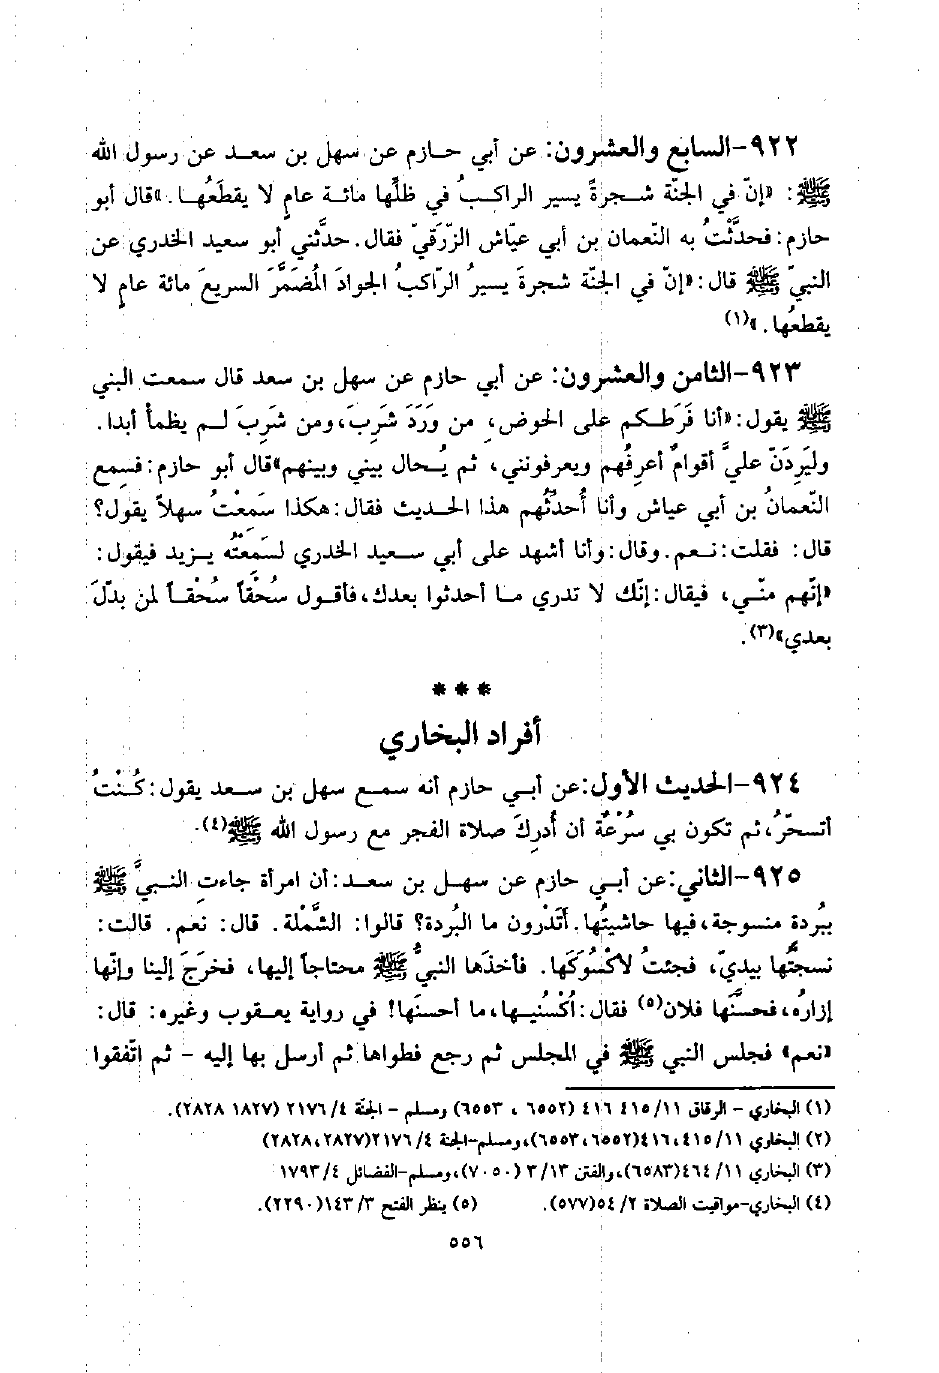 ٩٢٢-السابع والعشرون: عن أبي حازم عن سهل بن سعد عن رسول الله
ﷺ: «إنّ في الجنّة شجرةً يسير الراكبُ في ظلّها مائة عامٍ لا يقطعُها.»قال أبو
حازم: فحدَّثْتُ به النّعمان بن أبي عيّاش الزّرَقيّ فقال. حدَّثني أبو سعيد الخدري عن
النبيّ ﷺ قال: «إنّ في الجنّة شجرةَ يسيرُ الرّاكبُ الجوادَ المُضَمَّرَ السريعَ مائة عامٍ لا
يقطعُها.»(١)
٩٢٣-الثامن والعشرون: عن أبي حازم عن سهل بن سعد قال سمعت البني
ﷺ يقول: «أنا فَرَطكم على الحوض، من وَرَدَ شَرِبَ، ومن شَرِبَ لم يظمأ أبدا.
وليَرِدَنّ عليَّ أقوامٌ أعرِفُهم ويعرفونني، ثم يُحال بيني وبينهم»قال أبو حازم: فسمع
النّعمانُ بن أبي عياش وأنا أُحدّثُهم هذا الحديث فقال: هكذا سَمِعْتُ سهلاً يقول؟
قال: فقلت: نعم. وقال: وأنا أشهد على أبي سعيد الخدري لسَمِعتُه يزيد فيقول:
«إنّهم منّي، فيقال: إنّك لا تدري ما أحدثوا بعدك، فأقول سُحْقاً سُحْقاً لمن بدّلَ
بعدي»(٣).
***
أفراد البخاري
٩٢٤-الحديث الأول: عن أبي حازم أنه سمع سهل بن سعد يقول: كُنْتُ
أتسحّرُ، ثم تكون بي سُرْعةٌ أن أُدرِكَ صلاة الفجر مع رسول الله ﷺ(٤).
٩٢٥-الثاني: عن أبي حازم عن سهل بن سعد: أن امرأة جاءتِ النبيَّ ﷺ
ببُردة منسوجة، فيها حاشيتُها. أتَدْرون ما البُردة؟ قالوا: الشَّمْلة. قال: نعم. قالت:
نسجتُها بيديّ، فجئتُ لأكْسُوَكَها. فأخذَها النبيُّ ﷺ محتاجاً إليها، فخرَجَ إلينا وإنّها
إزارُه، فحسَّنَها فلان(٥) فقال: أكْسُنيها، ما أحسنَها! في رواية يعقوب وغيره: قال:
«نعم» فجلس النبي ﷺ في المجلس ثم رجع فطواها ثم أرسل بها إليه - ثم اتّفقوا
(١) البخاري - الرقاق ١١/ ٤١٥ ٤١٦ (٦٥٥٢ ، ٦٥٥٣) ومسلم - الجنّة ٤/ ٢١٧٦ (١٨٢٧ ٢٨٢٨).
(٢) البخاري ١١/ ٤١٥، ٤١٦(٦٥٥٢، ٦٥٥٣)، ومسلم-الجنة ٤/ ٢١٧٦(٢٨٢٧، ٢٨٢٨)
(٣) البخاري ١١/ ٤٦٤(٦٥٨٣)، والفتن ١٣/ ٣ (٧٠٥٠)، ومسلم-الفضائل ٤/ ١٧٩٣
(٤) البخاري-مواقيت الصلاة ٢/ ٥٤(٥٧٧). (٥) ينظر الفتح ٣/ ١٤٣(٢٢٩٠).
٥٥٦